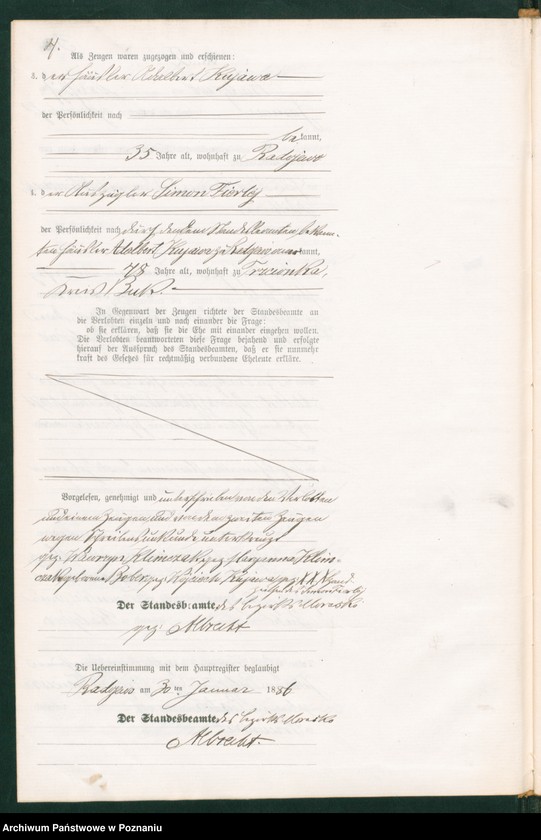 4.
Als Zeugen waren zugezogen und erschienen:
3. der Häusler Adalbert Kujawa
der Persönlichkeit nach
bekannt,
35 Jahre alt, wohnhaft zu Radojewo
4. der Auszügler Simon
der Persönlichkeit nach durch den dem Standesbeamten bekann-
ten Häusler Adalbert Kujawa zu anerkannt,
78 Jahre alt, wohnhaft zu
Kreis Buk.
In Gegenwart der Zeugen richtete der Standesbeamte an
die Verlobten einzeln und nach einander die Frage:
ob sie erklären, daß sie die Ehe mit einander eingehen wollen.
Die Verlobten beantworteten diese Frage bejahend und erfolgte
hierauf der Ausspruch des Standesbeamten, daß er sie nunmehr
kraft des Gesetzes für rechtmäßig verbundene Eheleute erkläre.
Vorgelesen, genehmigt und unterschrieben von den Verlobten
und einem Zeugen, und von dem zweiten Zeugen
wegen Schreibensunkunde unterkreuzt
gez. Wawrzyn Klimczak gez. Maryanna Klim-
czak geborene gez. Kujawa gez. XXX Hand-
zeichen des Simon
Der Standesbeamte des Bezirks Morasko
gez. Albrecht
Die Uebereinstimmung mit dem Hauptregister beglaubigt
am 30 ten Januar 1886
Der Standesbeamte des Bezirks Morasko
Albrecht.
Archiwum Państwowe w Poznaniu